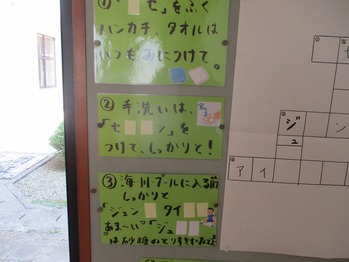 ①「□セ」をふく
ハンカチ タオルは
いつもみにつけて。
② 手洗いは、
「セ□□ン」を
つけて、しっかりと！
③ 海川プールに入る前
しっかりと
「ジュン□タイ□□
あま～い「ジュ□□
は砂糖のとりすぎに
ジ
ュ
アイ